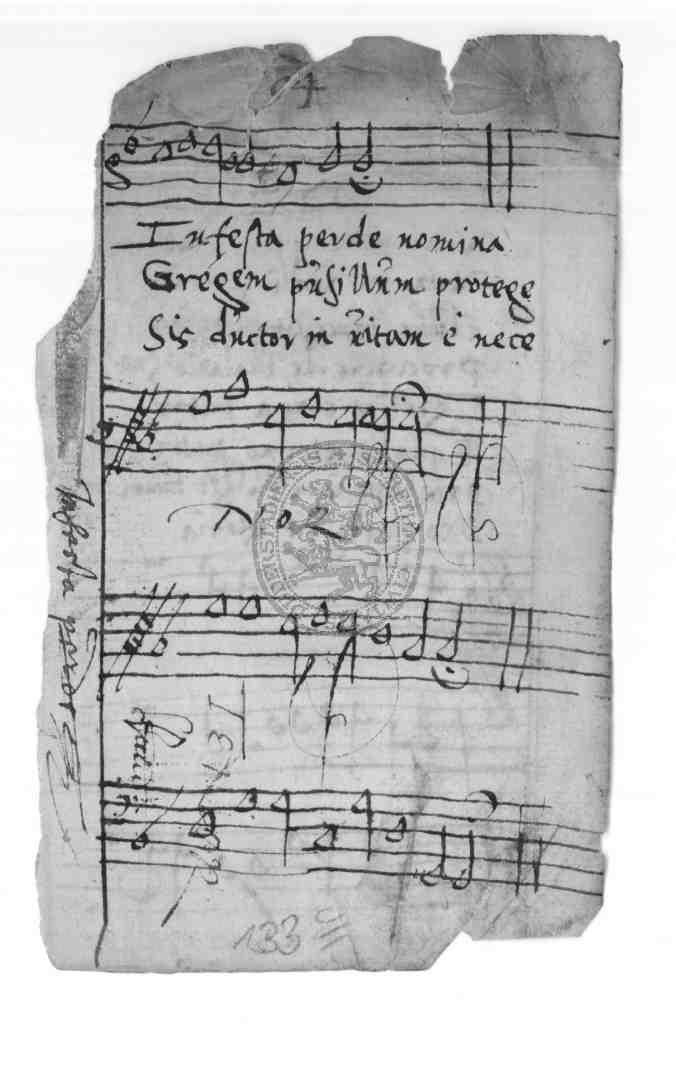 Infesta perde nomina
Gregem pusillum protege
Sis ductor in vitam è nece
No 2
Infesta perde
133